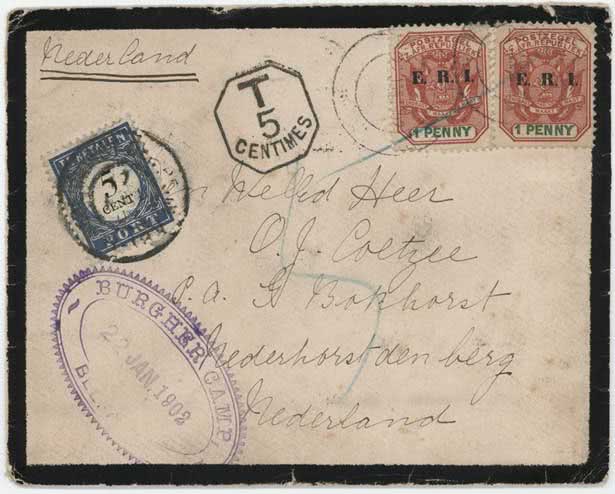 Nederland
T
5
CENTIMES
POSTZEGEL
Z.AFR.REPUBLIEK
E. R. I.
1 PENNY
POSTZEGEL
Z.AFR.REPUBLIEK
E. R. I.
1 PENNY
TE BETALEN
5
CENT
PORT
Heer
O. J. Coetzee
p. a. G Bokhorst
Nederhorst den berg
Nederland
BURGHER CAMP
22 JAN 1902